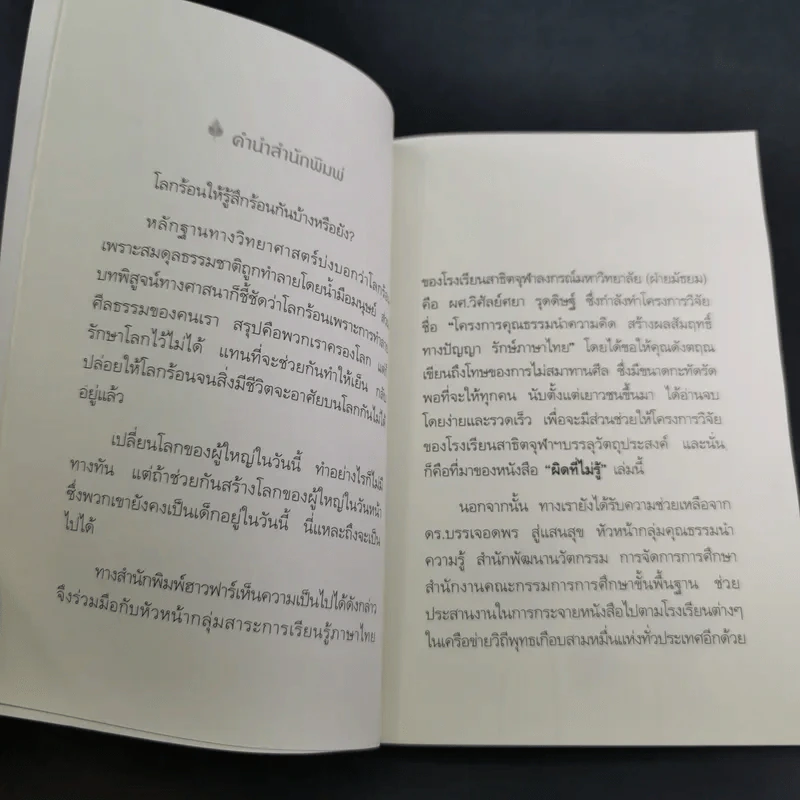 คำนำสำนักพิมพ์
โลกร้อนให้รู้สึกร้อนกันบ้างหรือยัง?
หลักฐานทางวิทยาศาสตร์บ่งบอกว่าโลกร้อน
เพราะสมดุลธรรมชาติถูกทำลายโดยน้ำมือมนุษย์
บทพิสูจน์ทางศาสนาก็ชี้ชัดว่าโลกร้อนเพราะการทำลาย
ศีลธรรมของคนเรา สรุปคือพวกเราครองโลก แต่
รักษาโลกไว้ไม่ได้ แทนที่จะช่วยกันทำให้เย็น กลับ
ปล่อยให้โลกร้อนจนสิ่งมีชีวิตจะอาศัยบนโลกกันไม่ได้
อยู่แล้ว
เปลี่ยนโลกของผู้ใหญ่ในวันนี้ ทำอย่างไรก็ไม่มี
ทางทัน แต่ถ้าช่วยกันสร้างโลกของผู้ใหญ่ในวันหน้า
ซึ่งพวกเขายังคงเป็นเด็กอยู่ในวันนี้ นี่แหละถึงจะเป็น
ไปได้
ทางสำนักพิมพ์ฮาวฟาร์เห็นความเป็นไปได้ดังกล่าว
จึงร่วมมือกับหัวหน้ากลุ่มสาระการเรียนรู้ภาษาไทย
ของโรงเรียนสาธิตจุฬาลงกรณ์มหาวิทยาลัย (ฝ่ายมัธยม)
คือ ผศ.วิศัลย์ศยา รุดดิษฐ์ ซึ่งกำลังทำโครงการวิจัย
ชื่อ "โครงการคุณธรรมนำความคิด สร้างผลสัมฤทธิ์
ทางปัญญา รักษ์ภาษาไทย" โดยได้ขอให้คุณดังตฤณ
เขียนถึงโทษของการไม่สมาทานศีล ซึ่งมีขนาดกะทัดรัด
พอที่จะให้ทุกคน นับตั้งแต่เยาวชนขึ้นมา ได้อ่านจบ
โดยง่ายและรวดเร็ว เพื่อจะมีส่วนช่วยให้โครงการวิจัย
ของโรงเรียนสาธิตจุฬาฯบรรลุวัตถุประสงค์ และนั่น
ก็คือที่มาของหนังสือ "ผิดที่ไม่รู้" เล่มนี้
นอกจากนั้น ทางเรายังได้รับความช่วยเหลือจาก
ดร.บรรเจอดพร สู่แสนสุข หัวหน้ากลุ่มคุณธรรมนำ
ความรู้ สำนักพัฒนานวัตกรรม การจัดการการศึกษา
สำนักงานคณะกรรมการการศึกษาขั้นพื้นฐาน ช่วย
ประสานงานในการกระจายหนังสือไปตามโรงเรียนต่างๆ
ในเครือข่ายวิถีพุทธเกือบสามหมื่นแห่งทั่วประเทศอีกด้วย